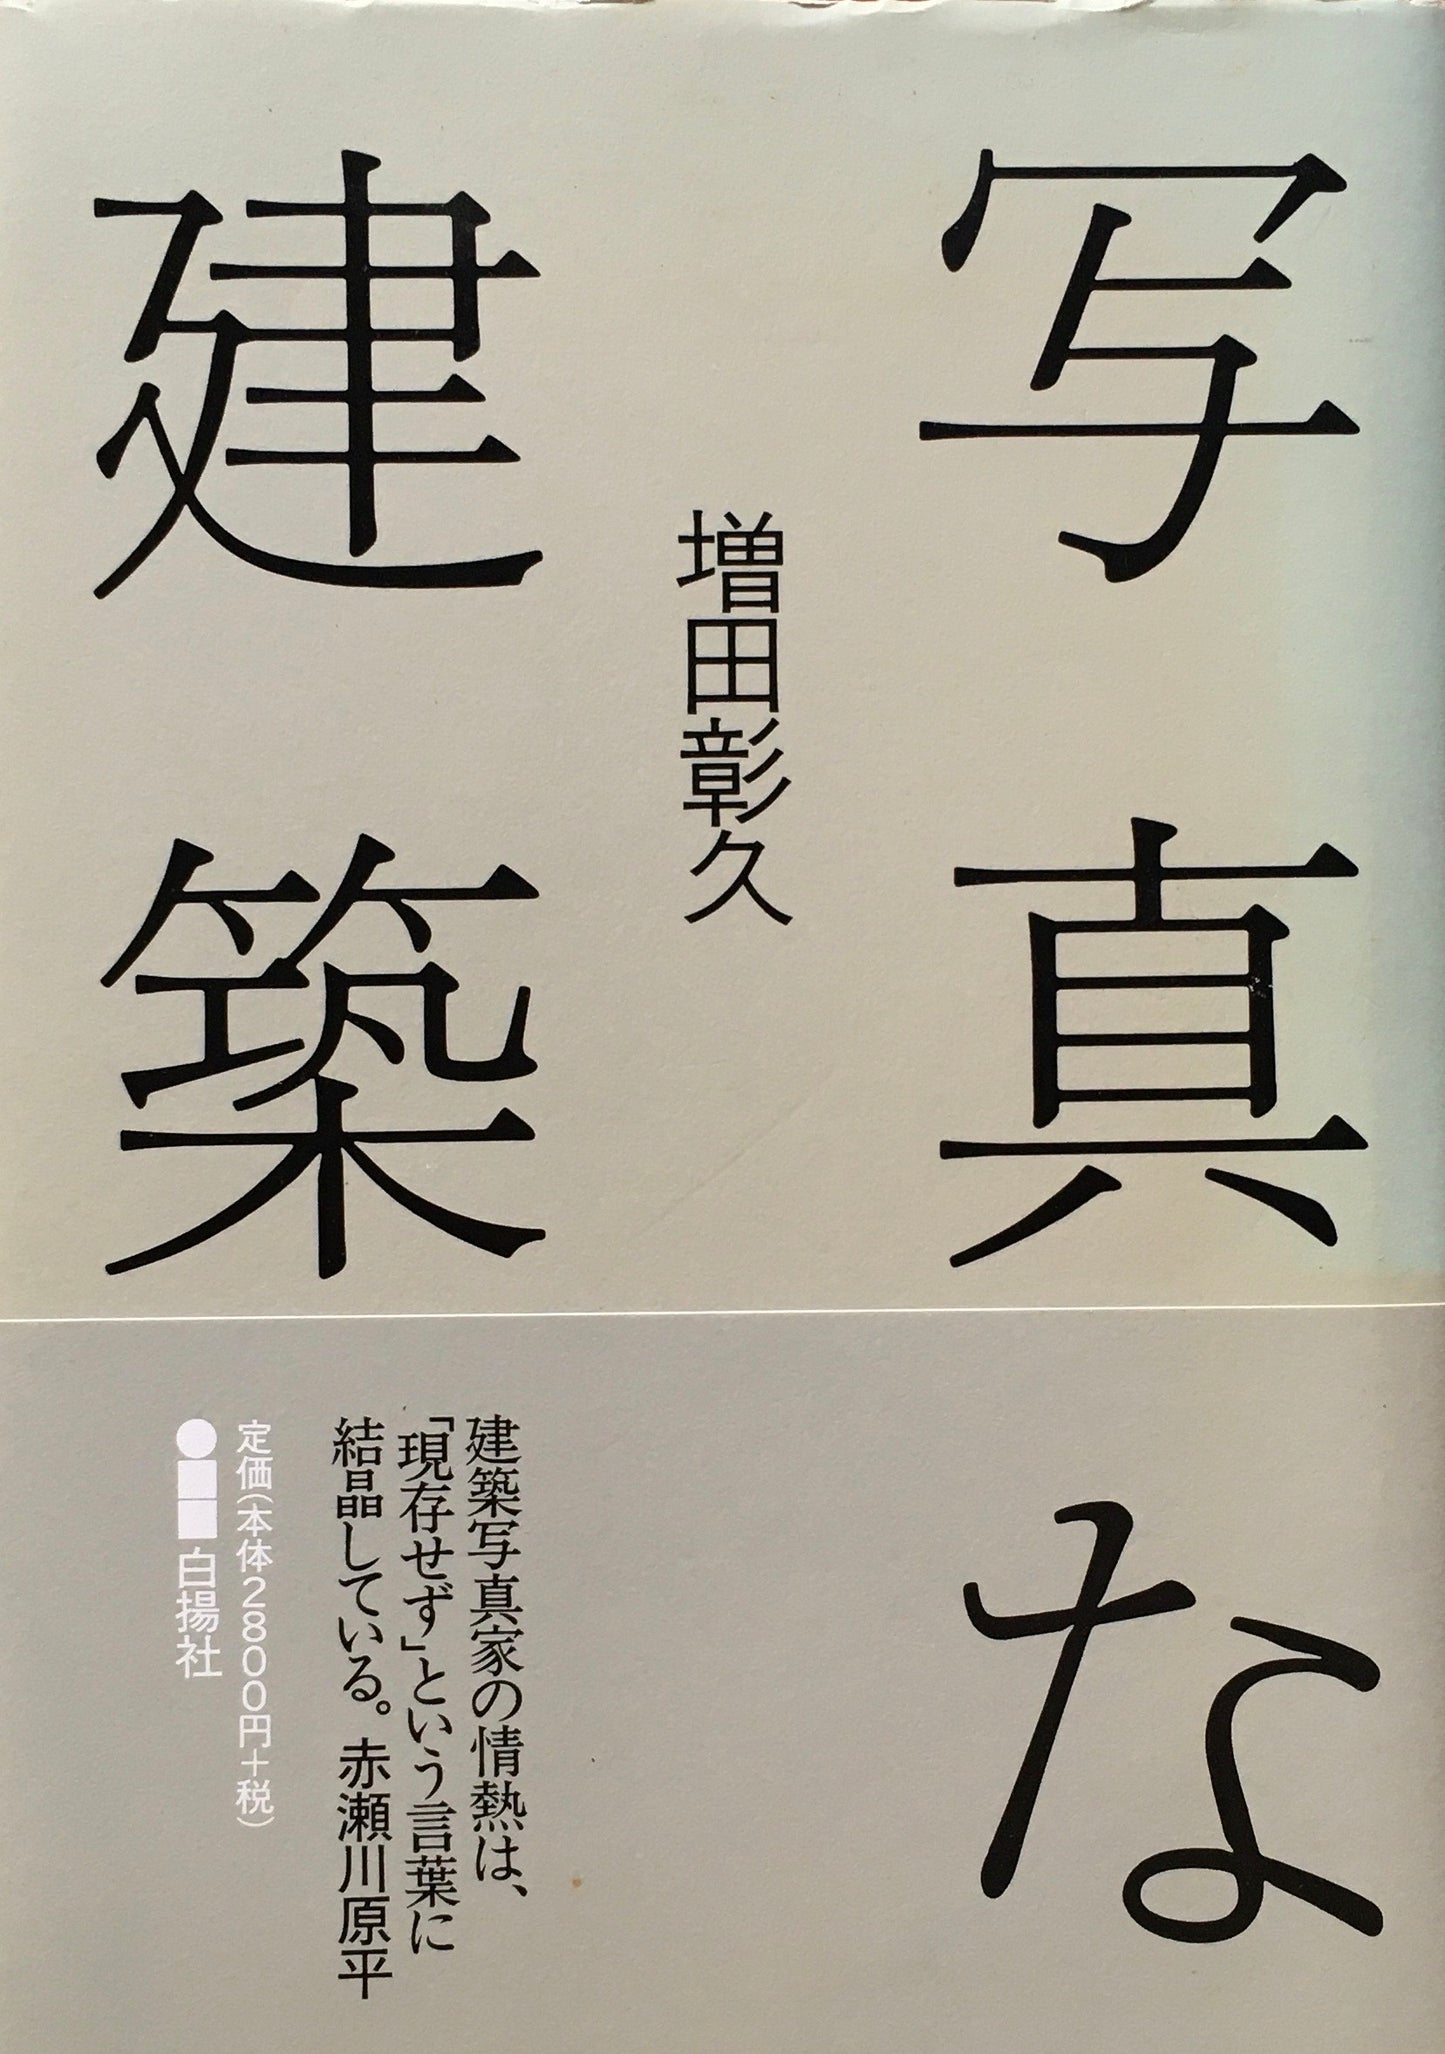 写真な
建築
増田彰久
建築写真家の情熱は、
「現存せず」という言葉に
結晶している。赤瀬川原平
定価(本体2800円+税)
●■■白揚社